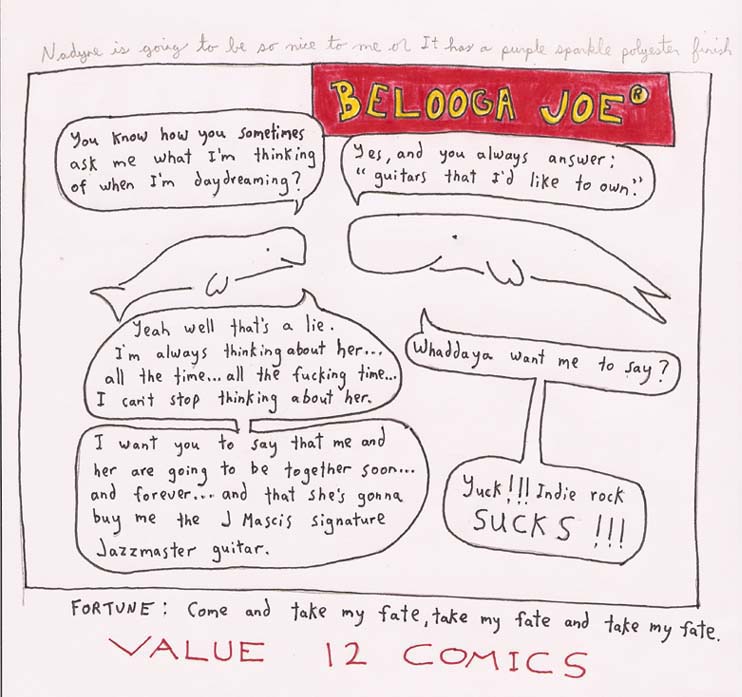 Nadyne is going to be so nice to me or It has a purple sparkle polyester finish
BELOOGA JOE®
You know how you sometimes
ask me what I'm thinking
of when I'm daydreaming?
Yes, and you always answer;
"guitars that I'd like to own."
Yeah well that's a lie.
I'm always thinking about her...
all the time... all the fucking time...
I can't stop thinking about her.
Whaddaya want me to say?
I want you to say that me and
her are going to be together soon...
and forever... and that she's gonna
buy me the J Mascis signature
Jazzmaster guitar.
Yuck!!! Indie rock
SUCKS!!!
FORTUNE: Come and take my fate, take my fate and take my fate.
VALUE 12 COMICS